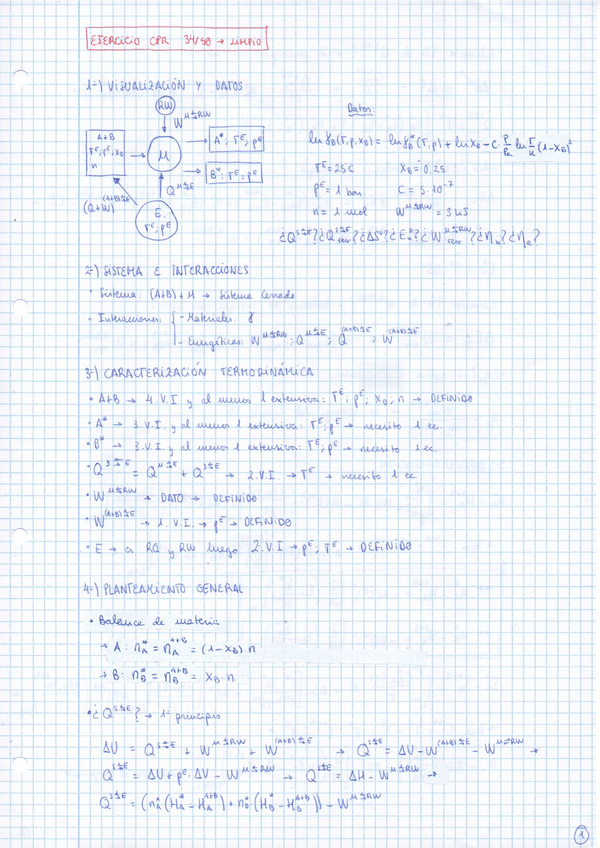 EJERCICIO CPR 34/50 → LIMPIO
1-) VISUALIZACIÓN Y DATOS
RW
W^{M⇄RW}
A+B
T^E, P^E, X_B
n
M
A*; T^E, P^E
B*; T^E, P^E
(Q+W)^{(A+B)⇄E}
Q^{M⇄E}
E,
T^E, P^E
Datos:
T^E = 25C X_B = 0,25
P^E = 1 bar C = 5·10^{-7}
n = 1 mol W^{M⇄RW} = 3 kJ
2-) SISTEMA E INTERACCIONES
• Sistema: (A+B)+M → Sistema Cerrado
• Interacciones: { - Materiales:
- Energéticas: W^{M⇄RW}; Q^{M⇄E}; Q^{(A+B)⇄E}; W^{(A+B)⇄E}
3-) CARACTERIZACIÓN TERMODINÁMICA
• A+B → 4.V.I y al menos 1 extensiva: T^E; P^E; X_B, n → DEFINIDO
• A* → 3.V.I. y al menos 1 extensiva: T^E; P^E → necesito 1 ec.
• B* → 3.V.I. y al menos 1 extensiva: T^E; P^E → necesito 1 ec.
• Q^{S⇄E} = Q^{M⇄E} + Q^{S⇄E} → 2.V.I. → T^E → necesito 1 ec.
• W^{M⇄RW} → DATO → DEFINIDO
• W^{(A+B)⇄E} → 1. V.I. → P^E → DEFINIDO
• E → es RQ y RW luego 2.V.I → P^E; T^E → DEFINIDO
4-) PLANTEAMIENTO GENERAL
• Balance de materia
→ A: n_A^* = n_A^{A+B} = (1-X_B)·n
→ B: n_B^* = n_B^{A+B} = X_B·n
• ¿Q^{S⇄E}? → 1º principio
ΔU = Q^{S⇄E} + W^{M⇄RW} + W^{(A+B)⇄E} → Q^{S⇄E} = ΔU - W^{(A+B)⇄E} - W^{M⇄RW} →
Q^{S⇄E} = ΔU + P^E·ΔV - W^{M⇄RW} → Q^{S⇄E} = ΔH - W^{M⇄RW} →
Q^{S⇄E} = (n_A^*(H_A^* - H_A^{A+B}) + n_B^*(H_B^* - H_B^{A+B})) - W^{M⇄RW}
1